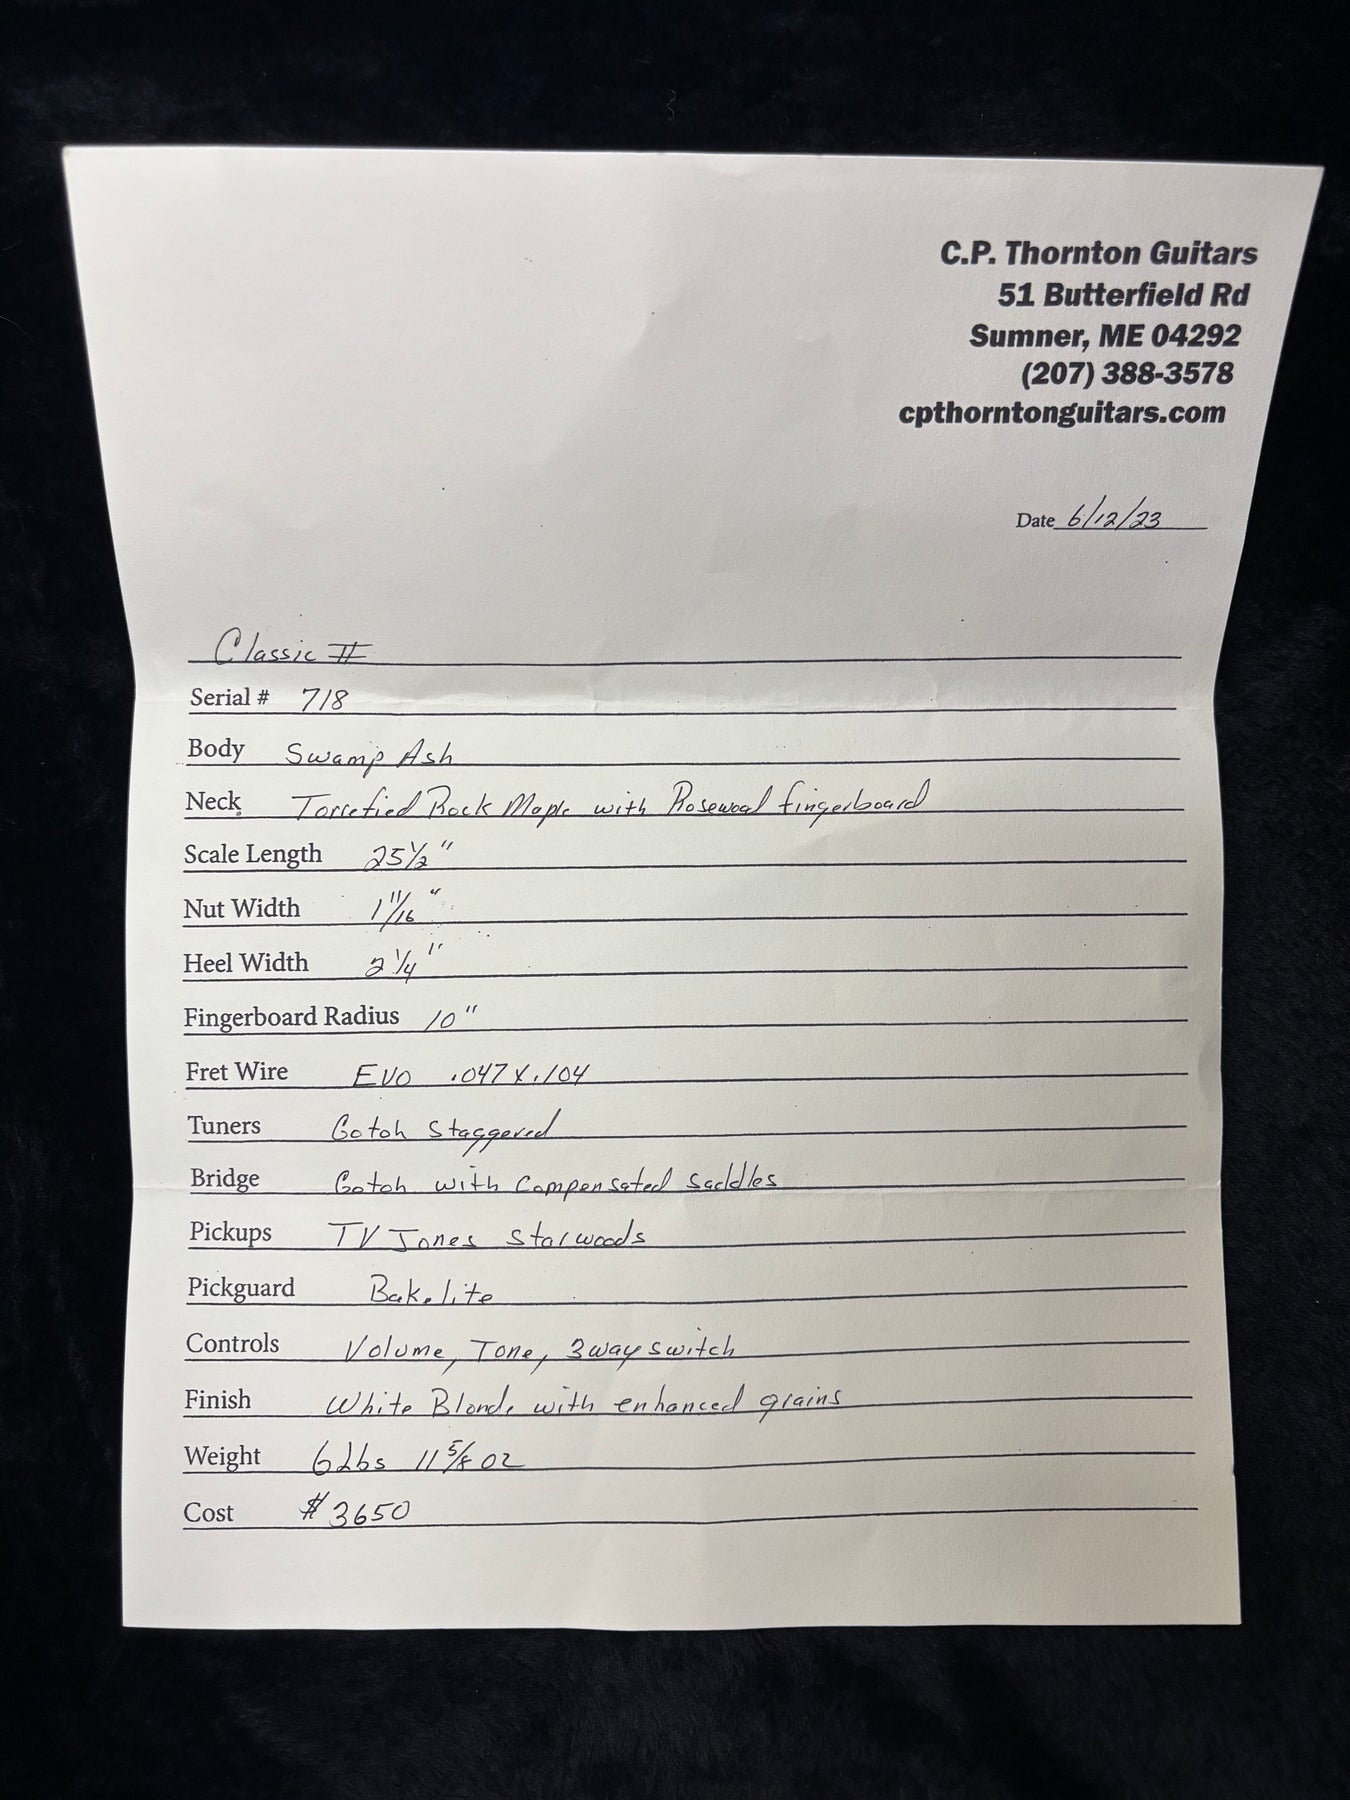 C.P. Thornton Guitars
51 Butterfield Rd
Sumner, ME 04292
(207) 388-3578
cpthorntonguitars.com
Date 6/12/23
Classic II
Serial # 718
Body Swamp Ash
Neck Torrefied Rock Maple with Rosewood fingerboard
Scale Length 25 1/2"
Nut Width 1 11/16"
Heel Width 2 1/4"
Fingerboard Radius 10"
Fret Wire EVO .047 x .104
Tuners Gotoh Staggered
Bridge Gotoh with Compensated Saddles
Pickups TV Jones Starwoods
Pickguard Bakelite
Controls Volume, Tone, 3way switch
Finish White Blonde with enhanced grains
Weight 6 Lbs 11 5/8 oz
Cost $3650